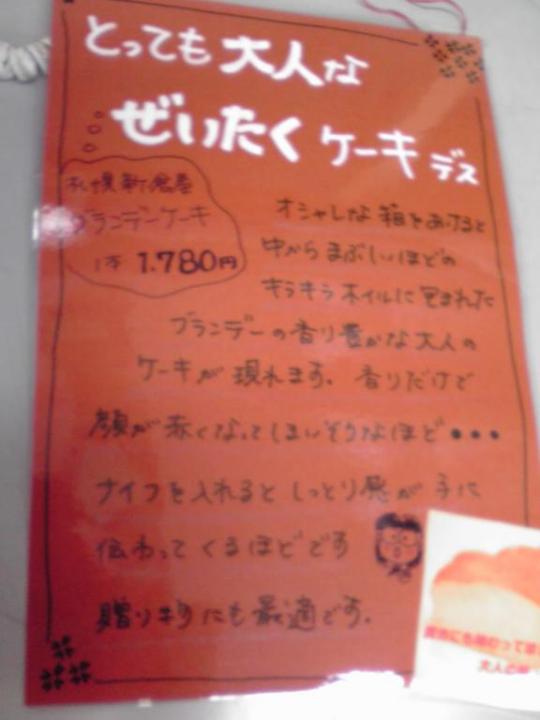 とっても大人な
ぜいたくケーキデス
札幌新倉屋
ブランデーケーキ
1本 1.780円
オシャレな箱をあけると
中からまぶしいほどの
キラキラホイルに包まれた
ブランデーの香り豊かな大人の
ケーキが現れます。香りだけで
顔が赤くなってしまいそうなほど・・・
ナイフを入れるとしっとり感が手に
伝わってくるほどです
贈り物にも最適です。